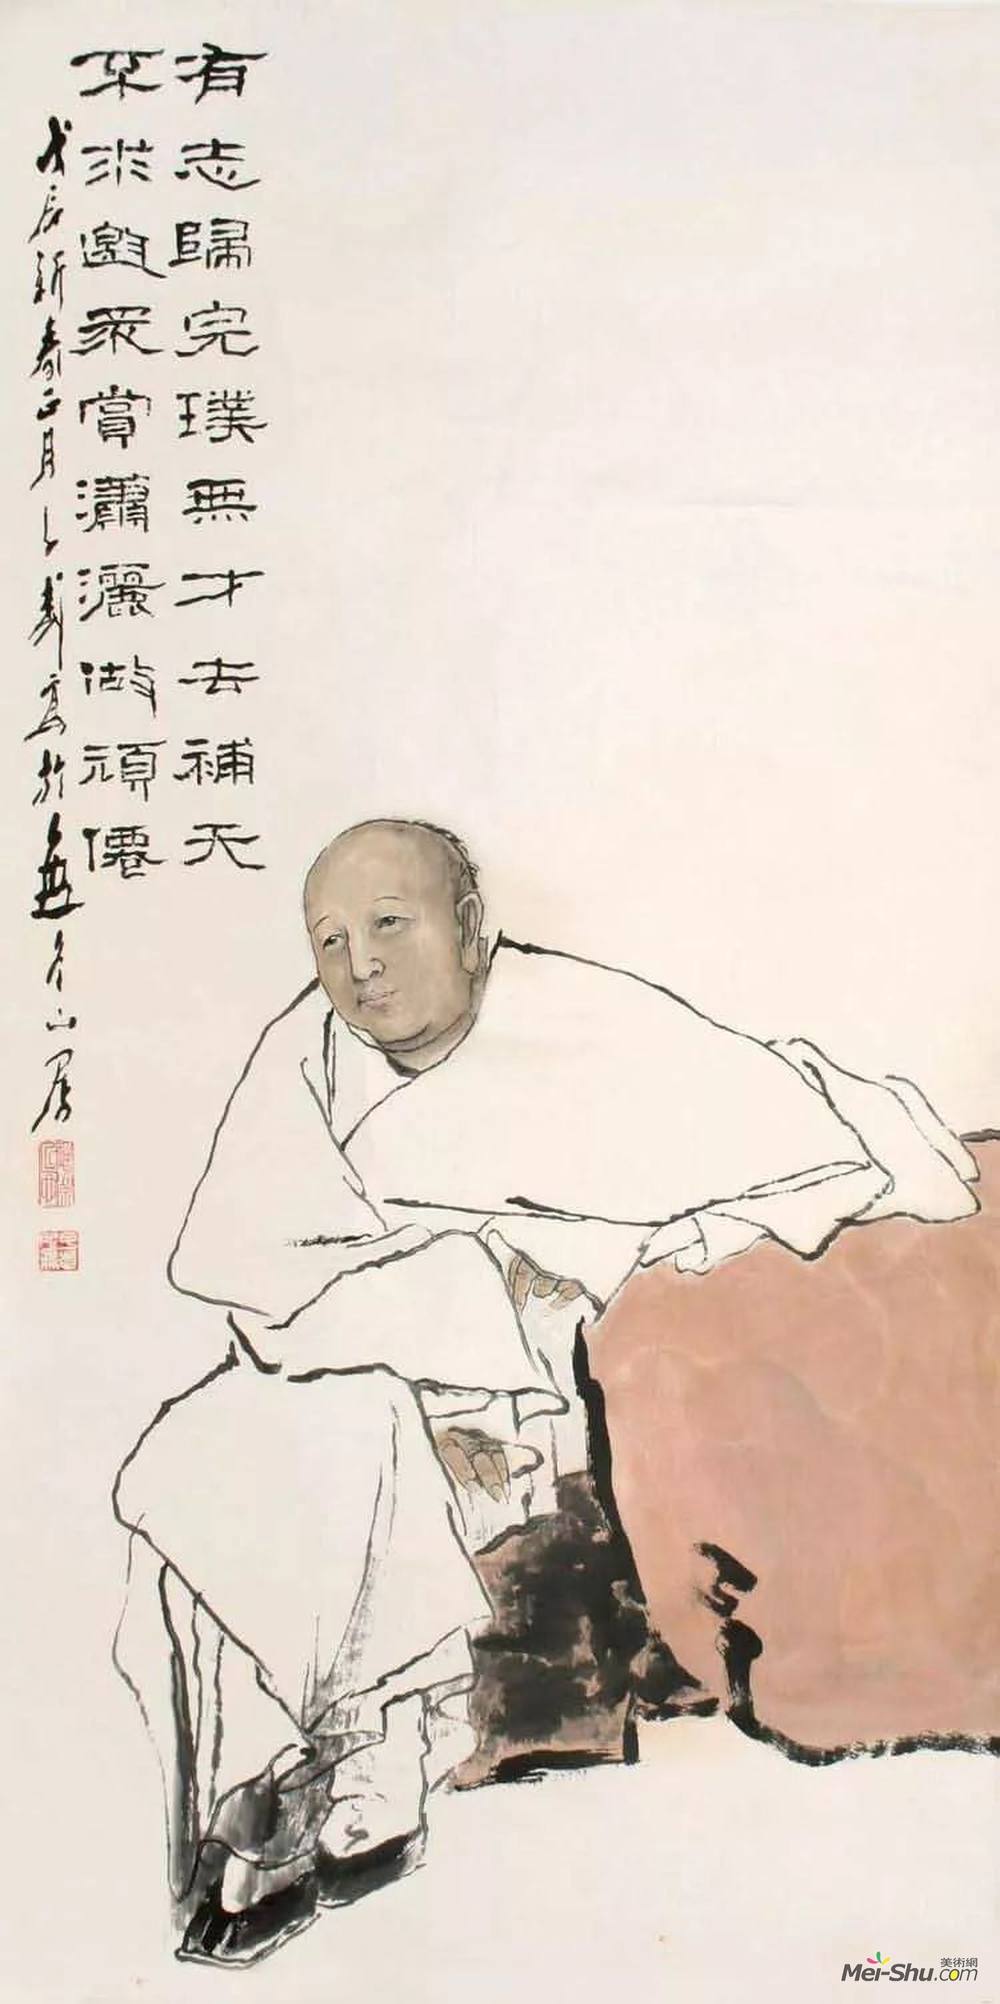 有志歸完璞無才去補天
不求邀眾賞瀟灑做頑僊
戊辰新春正月之戟寫於無名山居
美術網
Mei-Shu.com